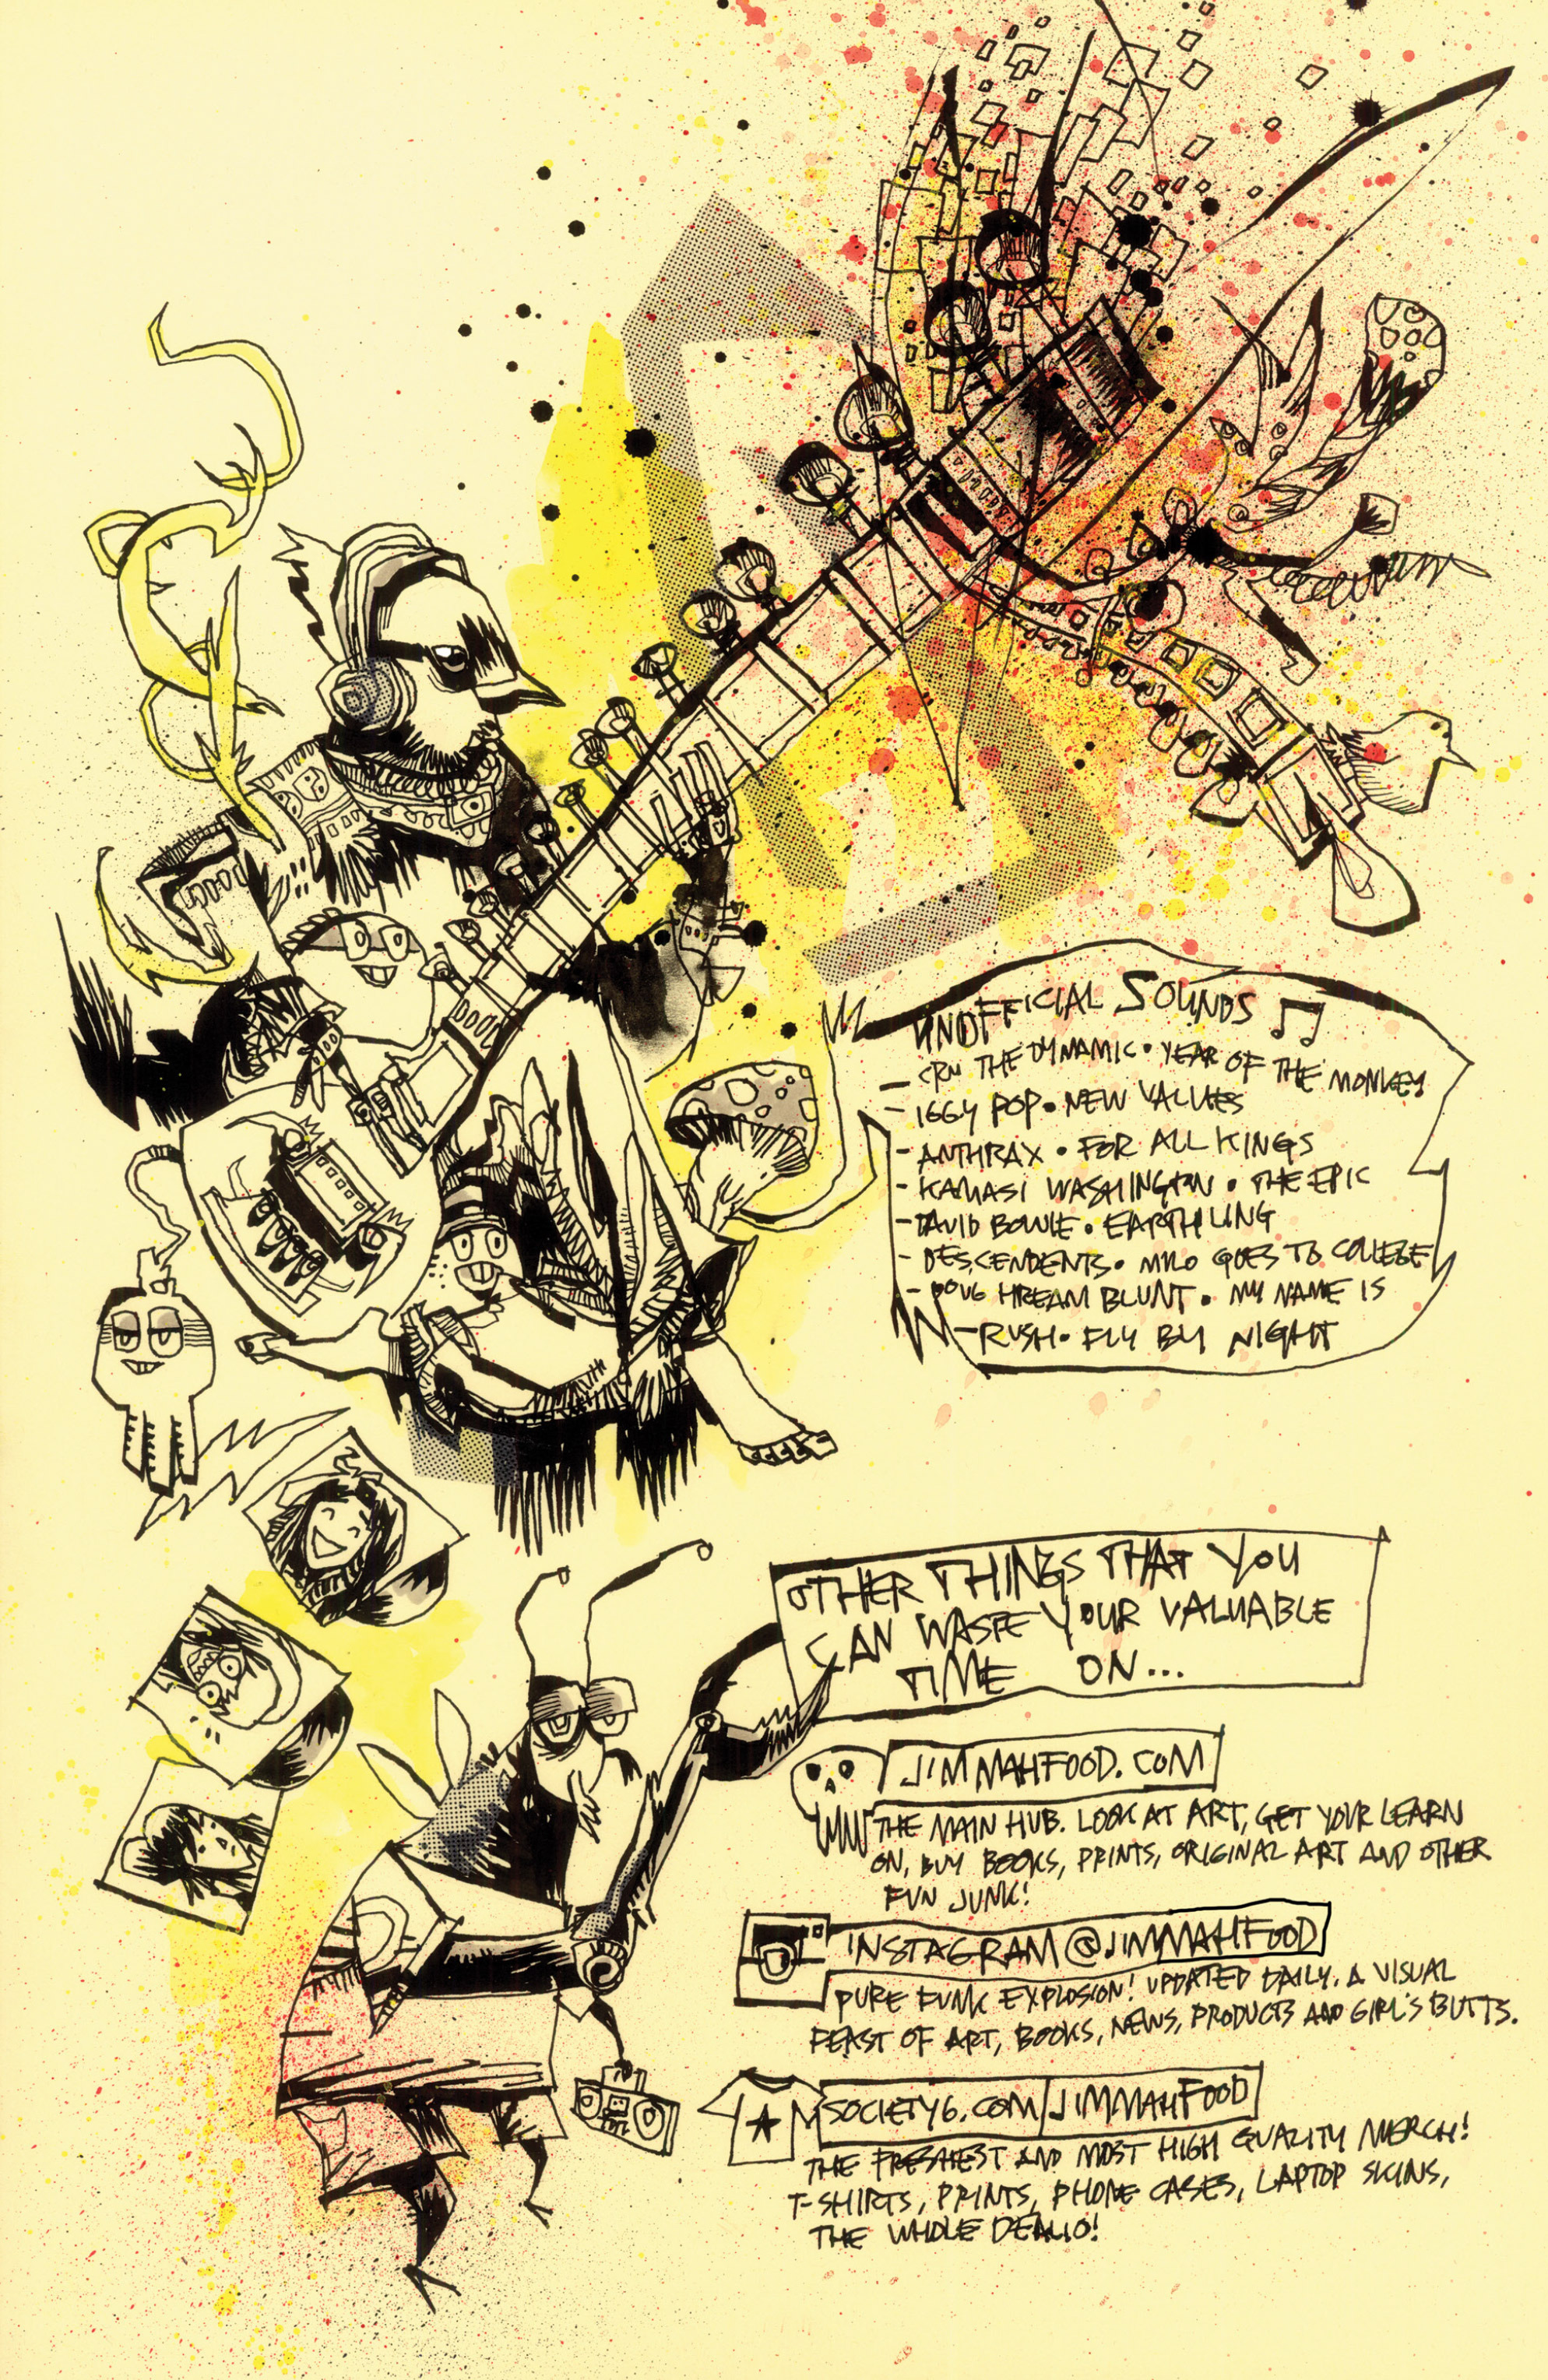 UNOFFICIAL SOUNDS
- CRN THE DYNAMIC • YEAR OF THE MONKEY
- IGGY POP • NEW VALUES
- ANTHRAX • FOR ALL KINGS
- KAMASI WASHINGTON • THE EPIC
- DAVID BOWIE • EARTHLING
- DESCENDENTS • MILO GOES TO COLLEGE
- DOUG HREAM BLUNT • MY NAME IS
- RUSH • FLY BY NIGHT
OTHER THINGS THAT YOU
CAN WASTE YOUR VALUABLE
TIME ON...
JIMMAHFOOD.COM
THE MAIN HUB. LOOK AT ART, GET YOUR LEARN
ON, BUY BOOKS, PRINTS, ORIGINAL ART AND OTHER
FUN JUNK!
INSTAGRAM @JIMMAHFOOD
PURE FUNK EXPLOSION! UPDATED DAILY. A VISUAL
FEAST OF ART, BOOKS, NEWS, PRODUCTS AND GIRL'S BUTTS.
SOCIETY6.COM/JIMMAHFOOD
THE FRESHEST AND MOST HIGH QUALITY MERCH!
T-SHIRTS, PRINTS, PHONE CASES, LAPTOP SKINS,
THE WHOLE DEALIO!